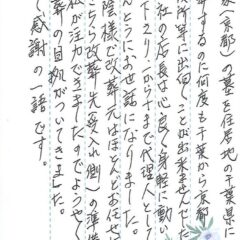 家(京都)の墓を住居地の千葉県に
葬するのに何度も千葉から京都
所用に出向くことが出来ませんでした
社の店長は心良く身軽に動い
下さり一から十まで代理人として
んとうにお世話になりました。
陰様で改葬元はほとんどお任せ
こちら改葬先(受入れ側)の準備
私が注力で立ましたのでようやく
葬の目処がついてきました。
て感謝の一話です。